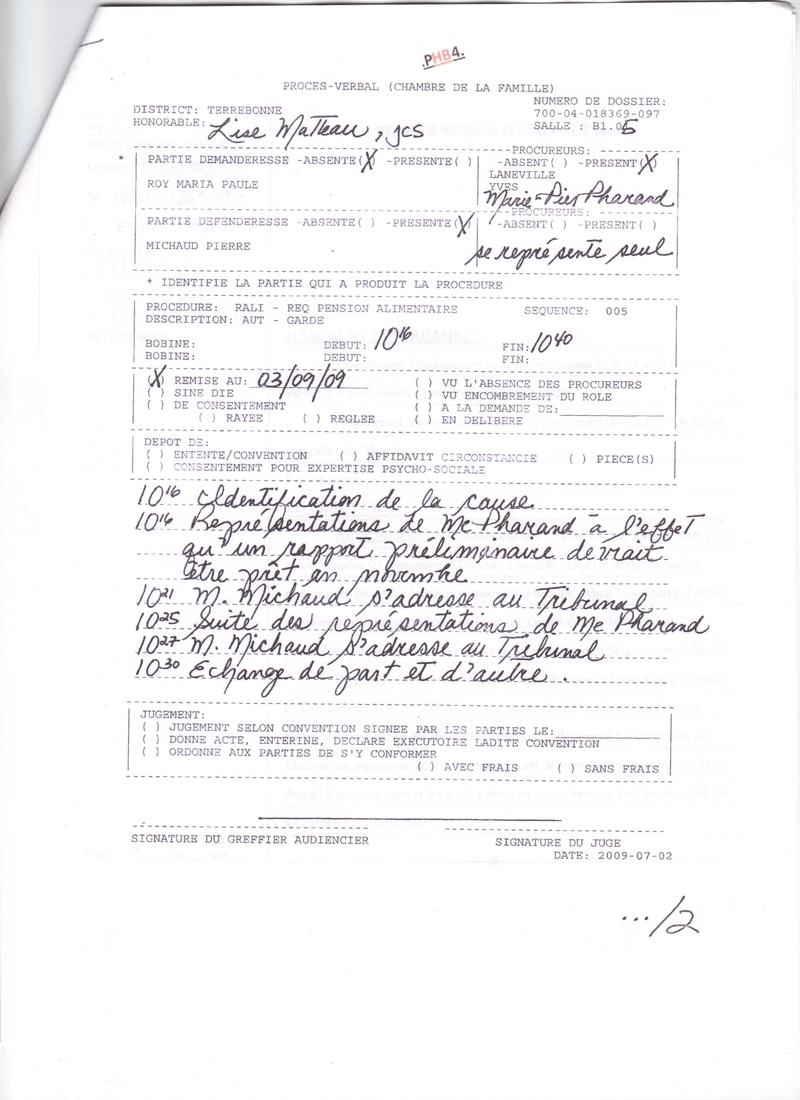 .PHB4.
PROCES-VERBAL (CHAMBRE DE LA FAMILLE)
NUMERO DE DOSSIER:
DISTRICT: TERREBONNE 700-04-018369-097
HONORABLE: Lise Matteau, JCS SALLE : B1.05
PROCUREURS:
* PARTIE DEMANDERESSE -ABSENTE(X) -PRESENTE( ) -ABSENT( ) -PRESENT(X)
LANEVILLE
ROY MARIA PAULE YVES
Marie-Pier Pharand
PROCUREURS:
PARTIE DEFENDERESSE -ABSENTE( ) -PRESENTE(X) -ABSENT( ) -PRESENT( )
MICHAUD PIERRE se représente seul
* IDENTIFIE LA PARTIE QUI A PRODUIT LA PROCEDURE
PROCEDURE: RALI - REQ PENSION ALIMENTAIRE SEQUENCE: 005
DESCRIPTION: AUT - GARDE
BOBINE: DEBUT: 10 16 FIN: 10 40
BOBINE: DEBUT: FIN:
(X) REMISE AU: 03/09/09 ( ) VU L'ABSENCE DES PROCUREURS
( ) SINE DIE ( ) VU ENCOMBREMENT DU ROLE
( ) DE CONSENTEMENT ( ) A LA DEMANDE DE:
( ) RAYEE ( ) REGLEE ( ) EN DELIBERE
DEPOT DE:
( ) ENTENTE/CONVENTION ( ) AFFIDAVIT CIRCONSTANCIE ( ) PIECE(S)
( ) CONSENTEMENT POUR EXPERTISE PSYCHO-SOCIALE
10 16 Identification de la cause
10 16 Représentations de Me Pharand à l'effet
qu'un rapport préliminaire devrait
être prêt en novembre
10 21 M. Michaud s'adresse au Tribunal
10 25 Suite des représentations de Me Pharand
10 27 M. Michaud s'adresse au Tribunal
10 30 Echange de part et d'autre.
JUGEMENT:
( ) JUGEMENT SELON CONVENTION SIGNEE PAR LES PARTIES LE:
( ) DONNE ACTE, ENTERINE, DECLARE EXECUTOIRE LADITE CONVENTION
( ) ORDONNE AUX PARTIES DE S'Y CONFORMER
( ) AVEC FRAIS ( ) SANS FRAIS
SIGNATURE DU GREFFIER AUDIENCIER SIGNATURE DU JUGE
DATE: 2009-07-02
.../2